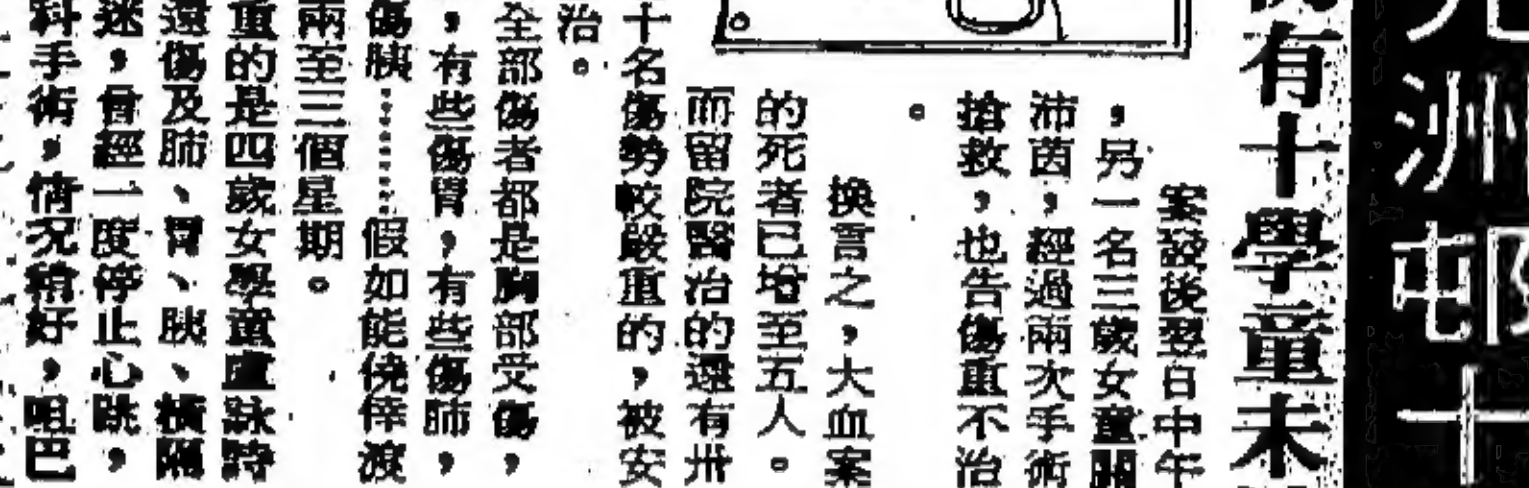 有十學童未
案發後翌日中午
，另一名三歲女童關
沛茵，經過兩次手術
搶救，也告傷重不治
。
換言之，大血案
的死者已增至五人。
而留院醫治的還有卅
十名傷勢較嚴重的，被安
治。
全部傷者都是胸部受傷，
，有些傷胃，有些傷肺，
傷胰………假如能僥倖渡
兩至三個星期。
重的是四歲女學童盧詠詩
還傷及肺、胃、胰、橫隔
迷，曾經一度停止心跳，
科手術，情况稍好，咀巴